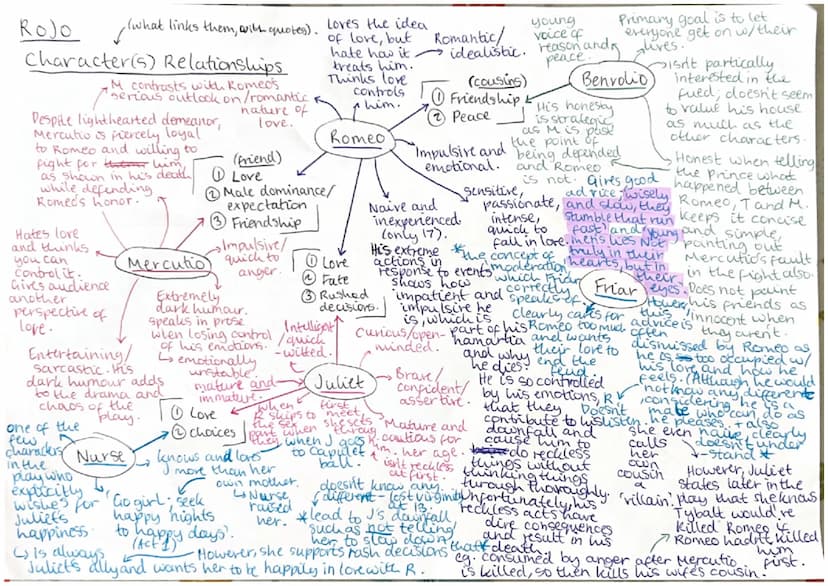 RoJo
(what links them, with quotes).
Character(s) Relationships
M contrasts with Romeo's
serious outlook on/romantic
nature of
love.
Despite lighthearted demeanor,
Mercutio is fiercely loyal
to Romeo and willing to
fight for him
as shown in his death
while defending
Romeo's honor.
Loves the idea
of love, but
hate how it
treats him.
Thinks love
controls
him.
Romantic/
idealistic.
young
voice of
reason and
peace.
Primary goal is to let
everyone get on w/their
lives.
Benvolio
Isn't partically
interested in the
fued; doesn't seem
to value his house
as much as the
other characters.
(cousins)
① Friendship
② Peace
Romeo
His honesty
is strategic
as M is past
the point of
being depended
and Romeo
is not.
Honest when telling
the Prince what
happened between
Romeo, T and M.
keeps it concise
and simple,
pointing out
Mercutio's fault
in the fight also.
Does not paint
his friends as
innocent when
they aren't.
(friend)
① Love
② Male dominance/
expectation
③ Friendship
Impulsive and
emotional.
Sensitive,
passionate,
intense,
quick to
fall in love.
Naive and
inexperienced
(only 17).
Gives good
advice: wisely
and slow, they
stumble that run
fast) and young
men's lies Not
truly in their
hearts, but in
their
eyes.
Friar
Hates love
and thinks
you can
control it.
Gives audience
another
perspective of
love.
Mercutio
Impulsive/
quick to
anger.
Extremely
dark humour.
speaks in prose
when losing control
of his emotions.
↳ emotionally
unstable
Entertaining/
sarcastic. His
dark humour adds
to the drama and
chaos of the
play.
① Love
② Fate
③ Rushed
decisions.
His extreme
actions in
response to events
shows how
impatient and
impulsive he
is, which is
part of his
hamartia
and why
he dies.
He is so controlled
by his emotions,
that they
contribute to his
downfall and
cause him to
do reckless
things without
thinking things
through thoroughly.
Unfortunately, his
reckless acts have
dire consequences
and result in his
death.
eg. consumed by anger after Mercutio
is killed, so then kills his wife's cousin.
* the concept of
moderation,
which Friar
correctly
speaks of.
clearly cares for
Romeo too much
and wants
their love to
end the
feud.
advice is often
dismissed by Romeo as
he is too occupied w/
his love and how he
feels. (Although he would
not know any different
considering he is a
male who can do as
he pleases. + also
naive, clearly
doesn't under
-stand *
R
Doesn't
listen.
Intelligent
/quick
-witted.
Curious/open-
minded.
Juliet
mature and
immature.
Brave/
confident/
assertive.
Mature and
cautious for
her age.
isn't reckless
at first.
when first
they meet,
she sets
the
pace when
they
kiss.
① Love
② choices
Nurse
one of the
few
characters
in the
play who
explicitly
wishes for
Juliet's
happiness.
↳ Is always
Juliet's ally and wants her to be happily in love with R.
knows and loves
J more than her
own mother.
↳ Nurse
raised
her.
when J goes
to Capulet
ball.
'Go girl, seek
happy nights
to happy days'.
(Act 1)
However, she supports rash decisions that
* lead to J's downfall
such as not telling
her to slow down
doesn't know any
different - lost virginity
at 13.
she even
calls
her
own
cousin
'villain'.
However, Juliet
states later in the
play that she knows
Tybalt would've
killed Romeo if
Romeo hadn't killed
him
first.